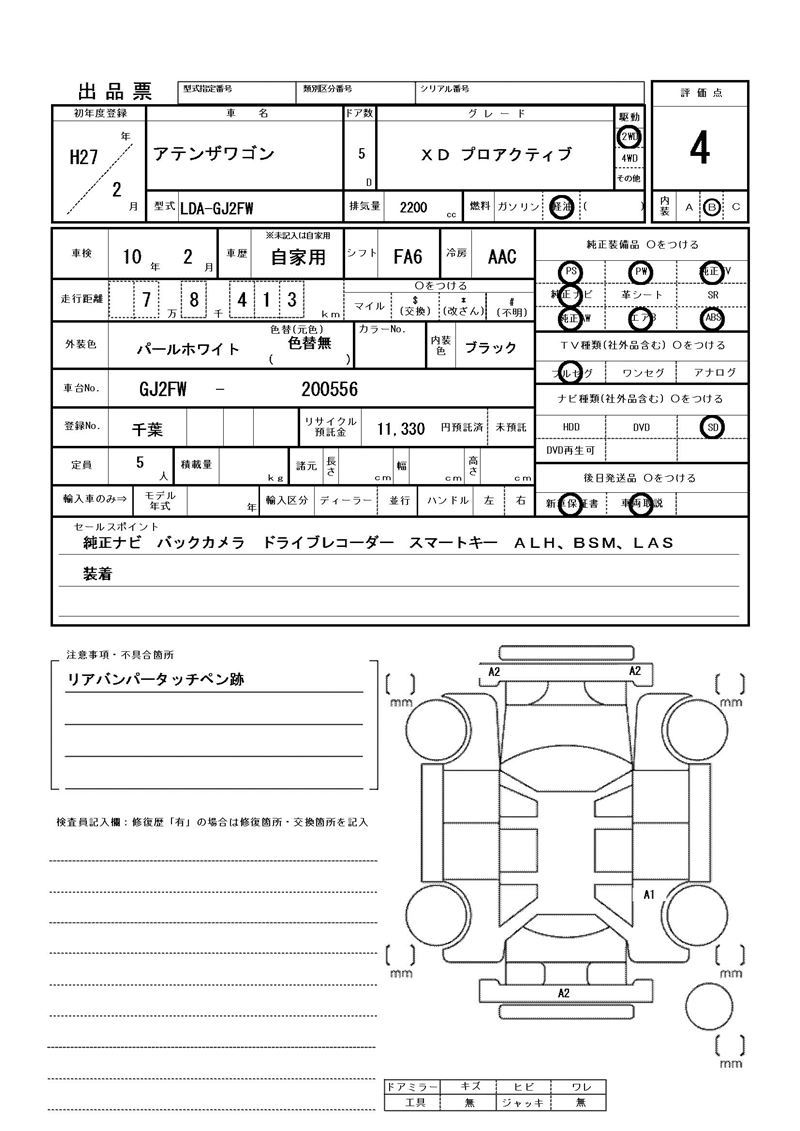 出品票 型式指定番号 類別区分番号 シリアル番号 評価点
初年度登録 車名 ドア数 グレード 駆動
H27 年 2 月 アテンザワゴン 5 D XD プロアクティブ 2WD 4WD その他 4
型式 LDA-GJ2FW 排気量 2200 cc 燃料 ガソリン 軽油 ( ) 内装 A B C
車検 10 年 2 月 車歴 ※未記入は自家用 自家用 シフト FA6 冷房 AAC
純正装備品 〇をつける
PS PW 純正TV
走行距離 7 万 8 千 4 1 3 km 〇をつける
マイル $(交換) *(改ざん) #(不明)
純正ナビ 革シート SR
純正AW エアB ABS
外装色 パールホワイト 色替(元色) 色替無 ( ) カラーNo. 内装色 ブラック
TV種類(社外品含む) 〇をつける
フルセグ ワンセグ アナログ
車台No. GJ2FW - 200556
ナビ種類(社外品含む) 〇をつける
HDD DVD SD
DVD再生可
登録No. 千葉 リサイクル預託金 11,330 円預託済 未預託
定員 5 人 積載量 kg 諸元 長さ cm 幅 cm 高さ cm
後日発送品 〇をつける
新車保証書 車両取説
輸入車のみ⇒ モデル年式 年 輸入区分 ディーラー 並行 ハンドル 左 右
セールスポイント
純正ナビ バックカメラ ドライブレコーダー スマートキー ALH、BSM、LAS
装着
注意事項・不具合箇所
リアバンパータッチペン跡
検査員記入欄：修復歴「有」の場合は修復箇所・交換箇所を記入
A2 A2
mm mm
A1
mm mm
A2
mm
ドアミラー キズ ヒビ ワレ
工具 無 ジャッキ 無